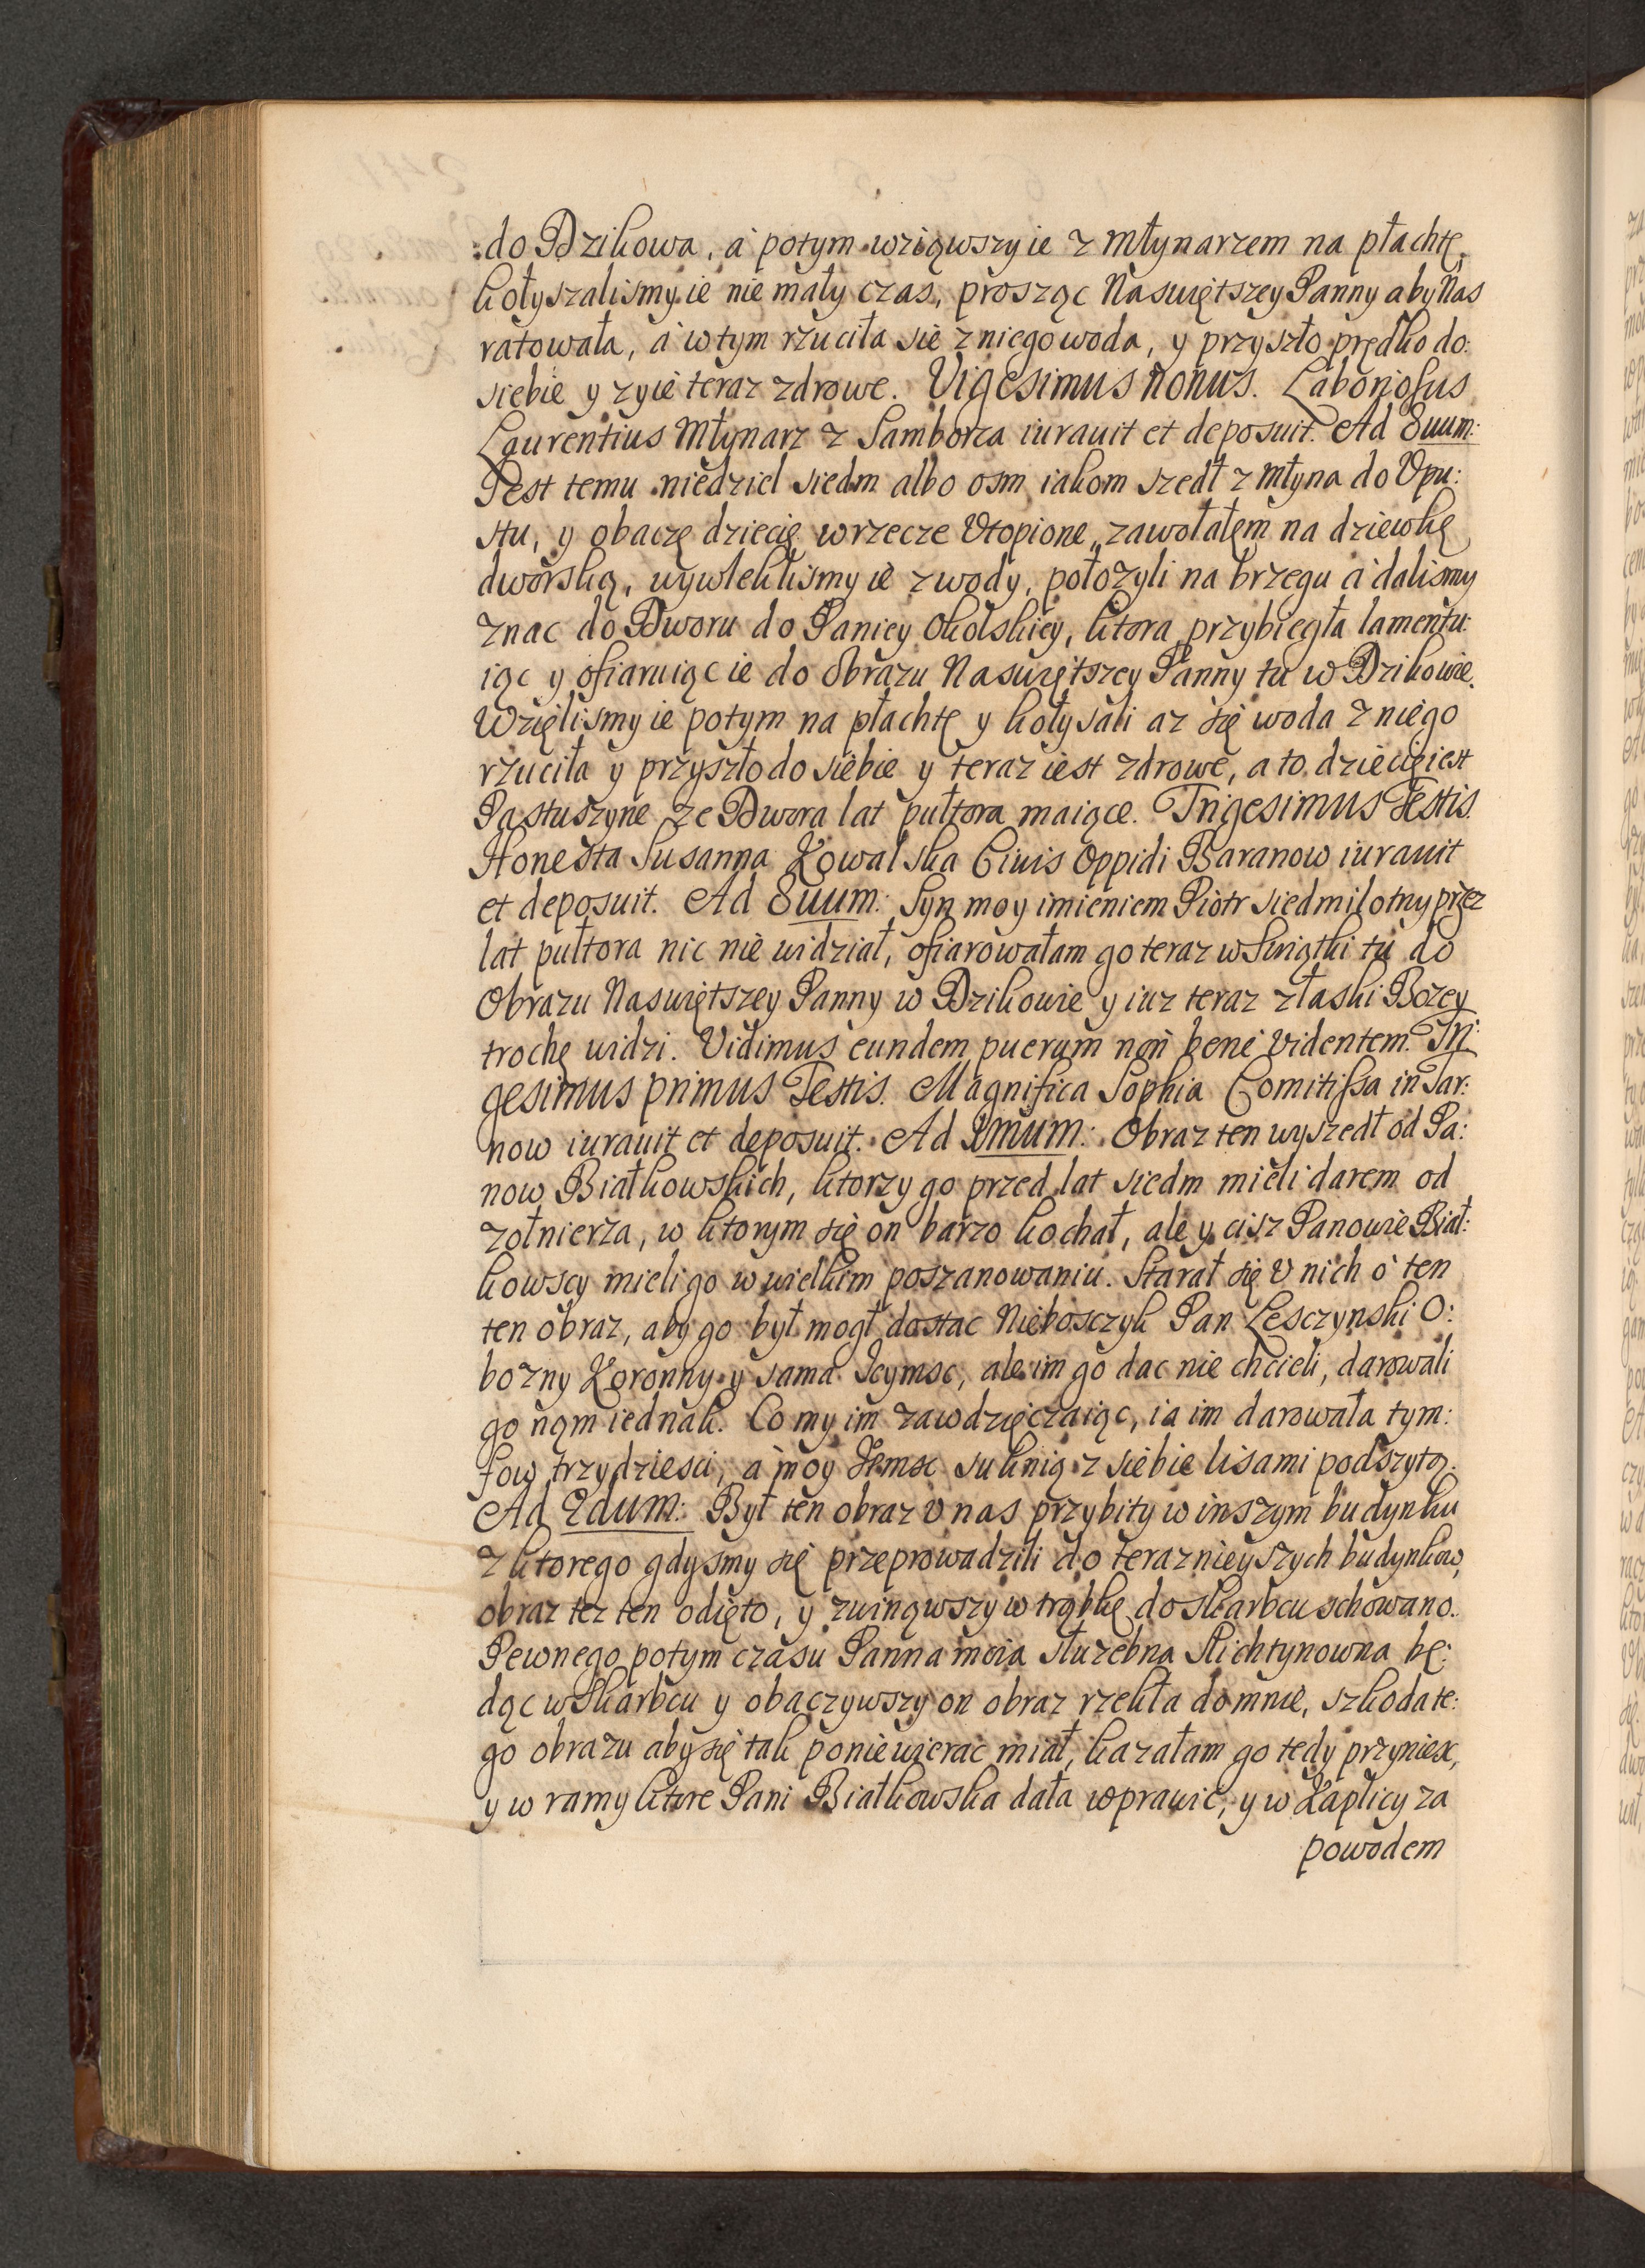 do Dzikowa, a potym wziąwszy ie z Młynarzem na płachtę
kołyszalismy ie nie mały czas, prosząc Naswiętszey Panny aby Nas
ratowała, a wtym rzuciła sie z niego woda, y przyszło prędko do:
siebie y zyie teraz zdrowe. Vigesimus Nonus. Laboriosus
Laurentius Młynarz z Samborca iurauit et deposuit. Ad 8uum:
Jest temu niedziel siedm albo osm iakom szedł z młyna do Vpu:
stu, y obaczę dziecię w rzecze Vtopione, zawołałem na dziewkę
dworską, wywlekłismy ie z wody, połozyli na brzegu a dalismy
znac do Dworu do Paniey Okolskiey, ktora przybiegła lamentu:
iąc y ofiaruiąc ie do Obrazu Naswiętszey Panny tu w Dzikowie.
Wzięlismy ie potym na płachtę y kołysali az się woda z niego
rzuciła y przyszło do siebie y teraz iest zdrowe, a to dziecię iest
Pastuszyne ze Dwora lat pułtora maiące. Trigesimus Testis.
Honesta Susanna Kowalska Ciuis Oppidi Baranow iurauit
et deposuit. Ad 8uum: Syn moy imieniem Piotr siedmilotny przez
lat pułtora nic nie widział, ofiarowałam go teraz w Swiątki tu do
Obrazu Naswiętszey Panny w Dzikowie y iuz teraz z łaski Bozey
trochę widzi. Vidimus eundem puerum non bene videntem. Tri:
gesimus primus Testis. Magnifica Sophia Comitissa in Tar:
now iurauit et deposuit. Ad 1mum: Obraz ten wyszedł od Pa:
now Białkowskich, ktorzy go przed lat siedm mieli darem od
zołnierza, w ktorym się on barzo kochał, ale y cisz Panowie Biał:
kowscy mieli go w wielkim poszanowaniu. Starał się V nich o ten
ten obraz, aby go był mogł dostac Nieboszczyk Pan Lesczynski O:
bozny Koronny y sama Jeymsc, ale im go dac nie chcieli, darowali
go nąm iednak. Co my im zawdzięczaiąc, ia im darowała tym:
fow trzydziesci, a moy Jemsc suknią z siebie lisami podszytą.
Ad 2dum: Był ten obraz v nas przybity w inszym budynku
z ktorego gdysmy się przeprowadzili do teraznieyszych budynkow,
obraz tez ten odięto, y zwinąwszy w trąbkę do skarbcu schowano.
Pewnego potym czasu Panna moia słuzebna Slichtynowna bę:
dąc w skarbcu y obaczywszy on obraz rzekła do mnie, szkoda te:
go obrazu aby się tak poniewierac miał, kazałam go tedy przyniesc,
y w ramy ktore Pani Białkowska dała wprawic, y w Kaplicy za
powodem